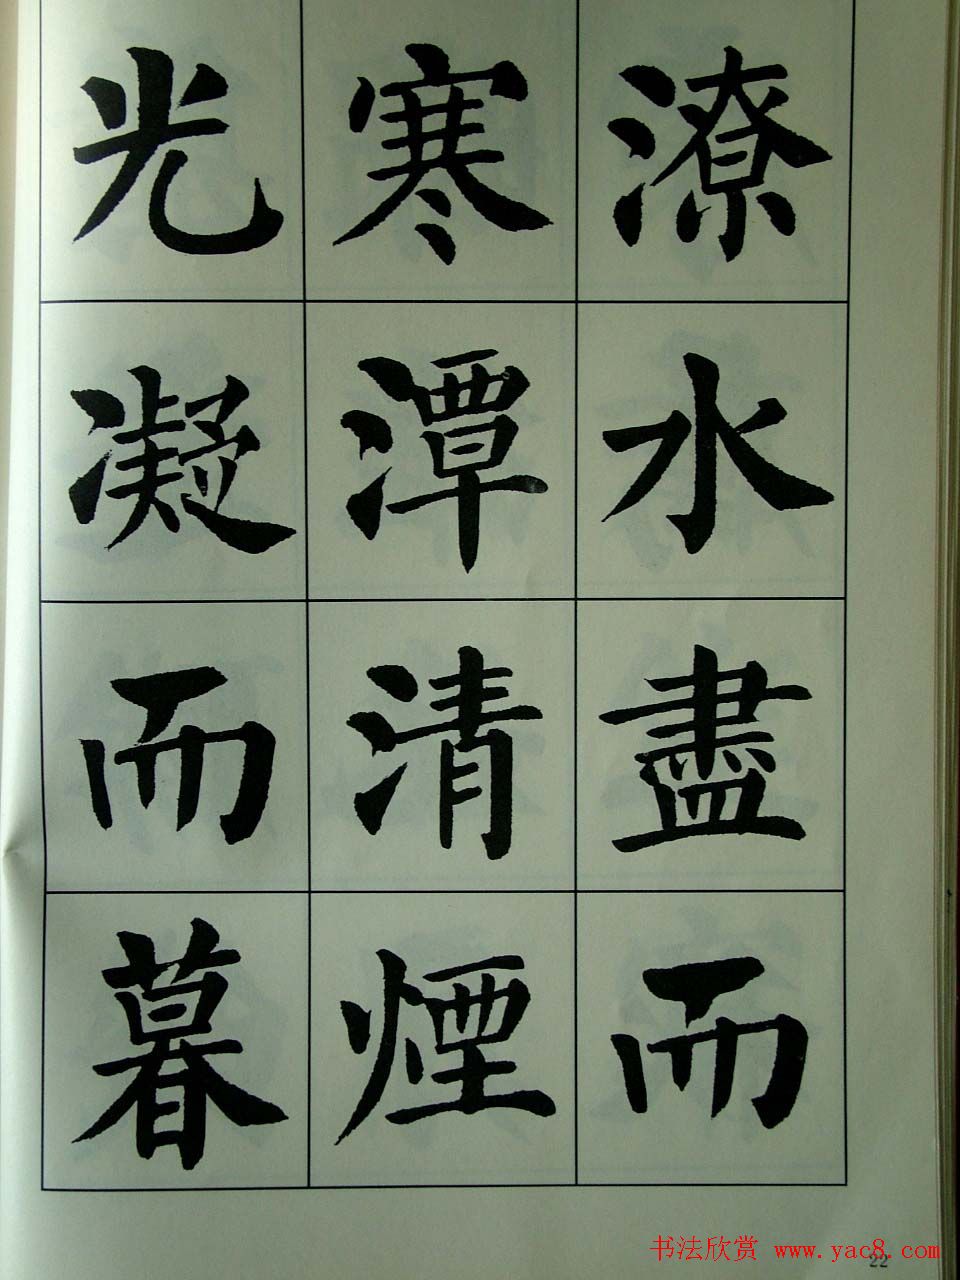 潦水盡而
寒潭清煙
光凝而暮
书法欣赏 www.yac8.com
22